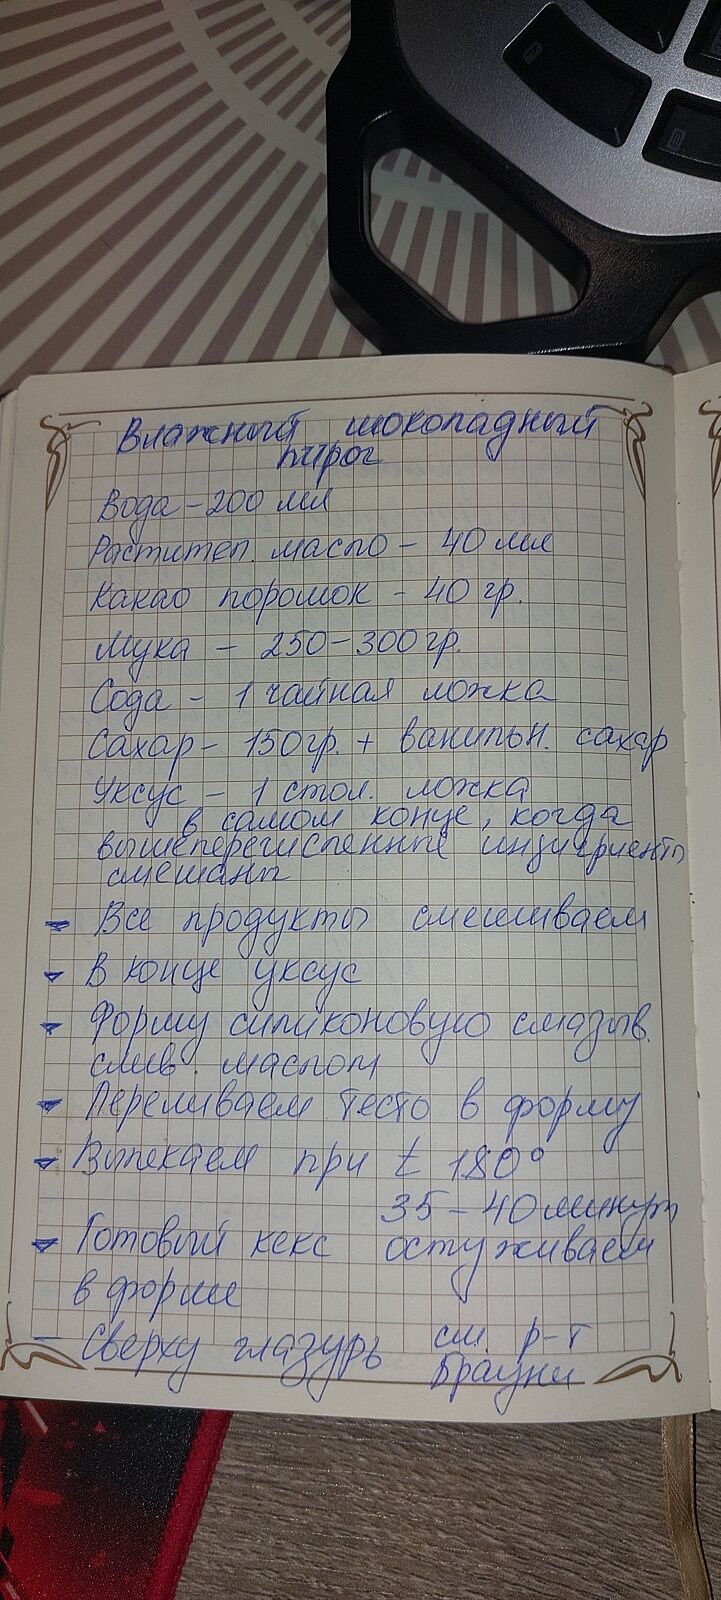 Влажный шоколадный
пирог
Вода - 200 мл
Растител. масло - 40 мл
Какао порошок - 40 гр.
Мука - 250-300 гр.
Сода - 1 чайная ложка
Сахар - 150 гр. + ванильн. сахар
Уксус - 1 стол. ложка
в самом конце, когда
вышеперечисленные ингигриенты
смешаны
- Все продукты смешиваем
- В конце уксус
- Форму силиконовую смазыв.
слив. маслом
- Переливаем тесто в форму
- Выпекаем при t 180°
35-40 минут
- Готовый кекс остуживаем
в форме
- Сверху глазурь см. р-т
Брауни